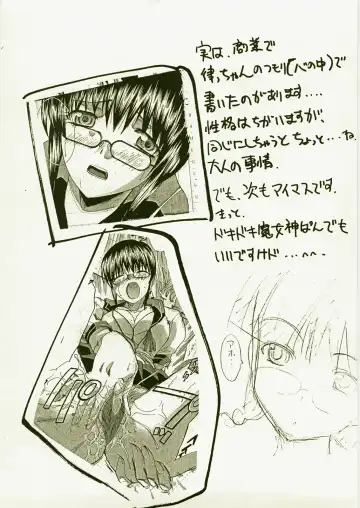 実は、商業で
律っちゃんのつもり(心の中)で
書いたのがあります....
性格はちがいますが、
同じにしちゃうと ちょっと...ね
大人の事情.
でも、次もアイマスです.
きっと.
ドキドキ魔女神ぱんでも
いいですけド...^^.
アホ...